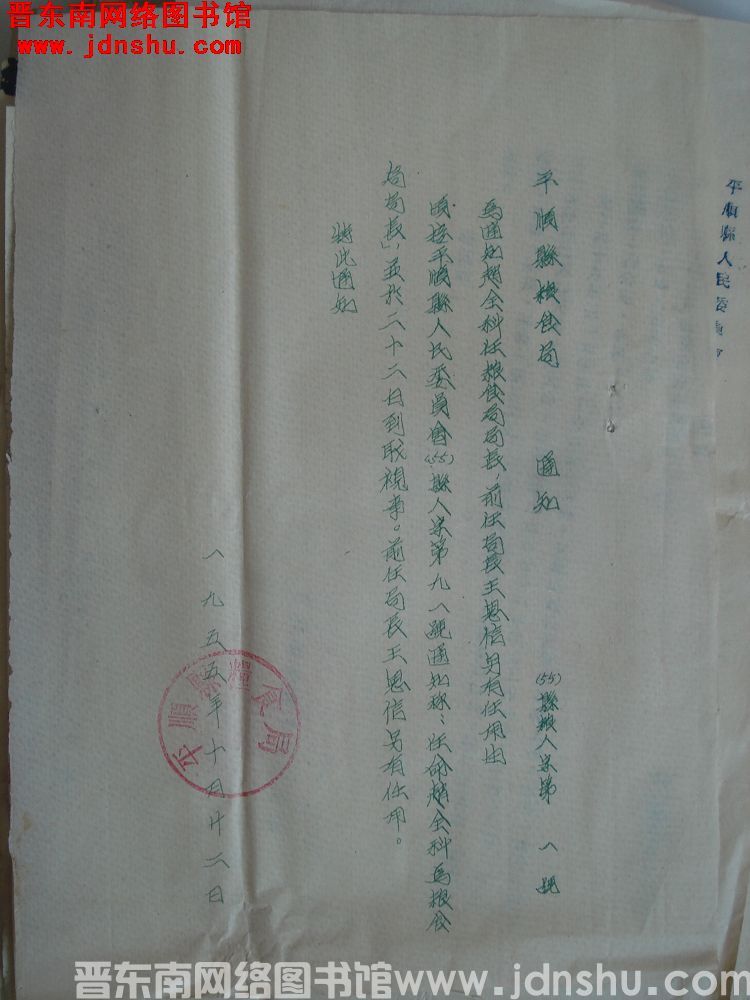 晋东南网络图书馆
www.jdnshu.com
平順縣人民委員會
平順縣粮食局 通知 (55)縣粮人字第一號
為通知趙全科任粮食局局長，前任局長王恩信另有任用由
頃接平順縣人民委員會(55)縣人字第九一號通知称：任命趙全科為粮食
局局長，並於二十二日到职視事。前任局長王恩信另有任用。
特此通知
一九五五年十月廿二日
平順縣糧食局
晋东南网络图书馆www.jdnshu.com